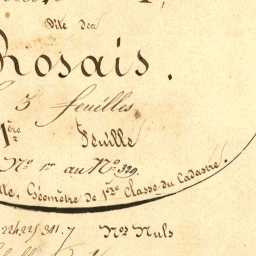 Dite des
Rosais.
3 feuilles
1ère Feuille
No 1er au No 329.
lle, Géomètre de 1ère Classe du Cadastre.
224, 225 311. 7 Nos Nuls